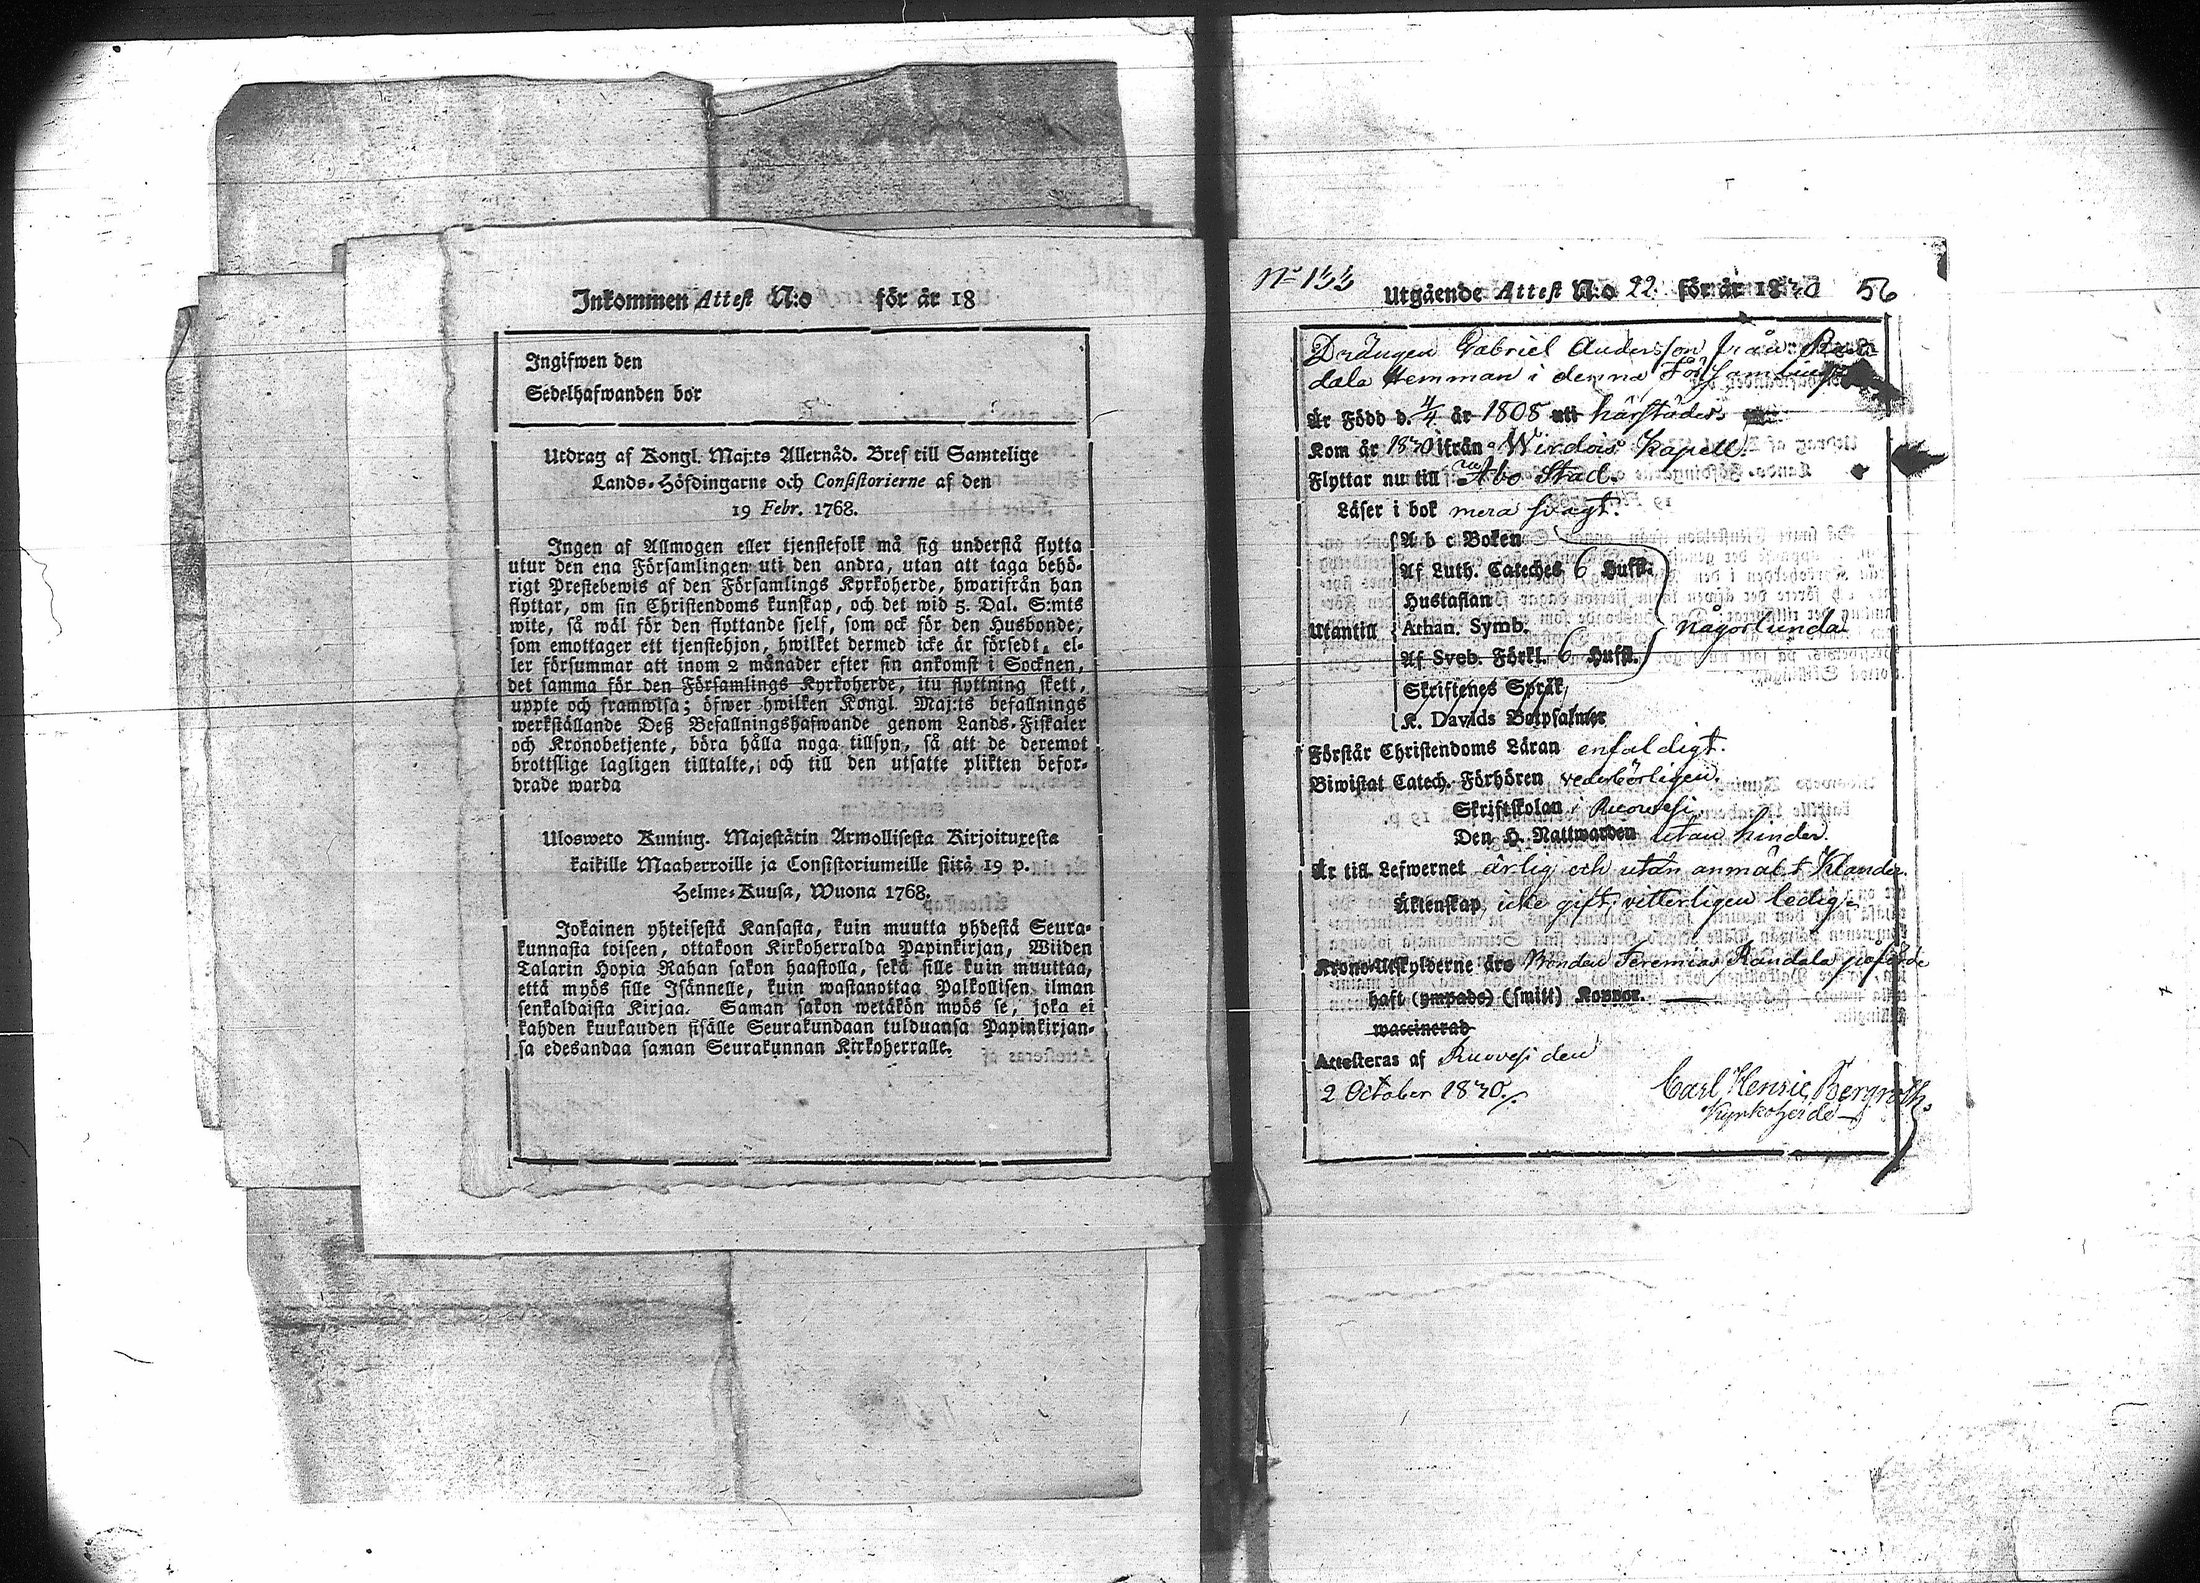 Inkommen Attest N:o för år 18
Ingifwen den
Sedelhafwanden bor
Utdrag af Kongl. Maj:ts Allernåd. Bref till Samtelige
Lands-Höfdingarne och Consistorierne af den
19 Febr. 1768.
Ingen af Allmogen eller tjenstefolk må sig understå flytta
utur den ena Församlingen uti den andra, utan att taga behö-
rigt Prestebewis af den Församlings Kyrkoherde, hwarifrån han
flyttar, om sin Christendoms kunskap, och det wid 5. Dal. S:mts
wite, så wäl för den flyttande sjelf, som ock för den Husbonde,
som emottager ett tjenstehjon, hwilket dermed icke är försedt, el-
ler försummar att inom 2 månader efter sin ankomst i Socknen,
det samma för den Församlings Kyrkoherde, itu flyttning skett,
uppte och framwisa; öfwer hwilken Kongl. Maj:ts befallnings
werkställande Deß Befallningshafwande genom Lands-Fiskaler
och Kronobetjente, böra hålla noga tillsyn, så att de deremot
brottslige lagligen tilltalte, och till den utsatte plikten befor-
drade warda
Ulosweto Kuning. Majestätin Armollisesta Kirjoituxesta
kaikille Maaherroille ja Consistoriumeille siitä 19 p.
Helme-Kuusa, Wuona 1768.
Jokainen yhteisestä Kansasta, kuin muutta yhdestä Seura-
kunnasta toiseen, ottakoon Kirkoherralda Papinkirjan, Wiiden
Talarin Hopia Rahan sakon haastolla, sekä sille kuin muuttaa,
että myös sille Isännelle, kuin wastanottaa Palkollisen ilman
senkaldaista Kirjaa. Saman sakon wetäkön myös se, joka ei
kahden kuukauden sisälle Seurakundaan tulduansa Papinkirjan-
sa edesandaa saman Seurakunnan Kirkoherralle.
No 133
Utgående Attest N:o 22. för år 1830 56
Drängen Gabriel Andersson från Ran
dala Hemman i denna Församling
Är Född d. 4/4 år 1808 uti härstädes
Kom år 1830 ifrån Wirdois Kapell.
Flyttar nu till Åbo Stad.
Läser i bok mera svagt.
A b c Boken
Af Luth. Cateches 6 Hufst.
Hustaflan
Utantill Athan. Symb. någorlunda
Af Sveb. Förkl. 6 Hufst.
Skriftenes Språk
K. Davids Botpsalmer
Förstår Christendoms Läran enfaldigt.
Biwistat Catech. Förhören vederbörligen.
Skriftskolan i Ruovesi.
Den H. Nattwarden utan hinder.
Är till Lefwernet ärlig och utan anmält Klander.
Äktenskap icke gift, vitterligen ledig.
Krono-Utskylderne äro Bonden Jeremias Randala påförde
haft (ympade) (smitt) Koppor.
waccinerad
Attesteras af Ruovesi den
2 October 1830.
Carl Henric Bergroth.
Kyrkoherde